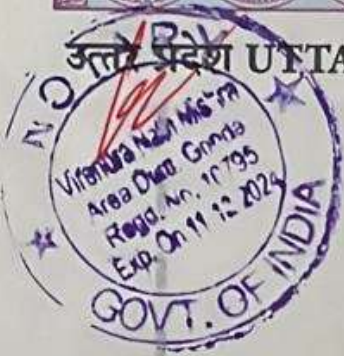 उत्तर प्रदेश UTTA
NOTARY
Virendra Nath Misra
Area Distt. Gonda
Regd. No. 10795
Exp. On 11 12 2024
GOVT. OF INDIA